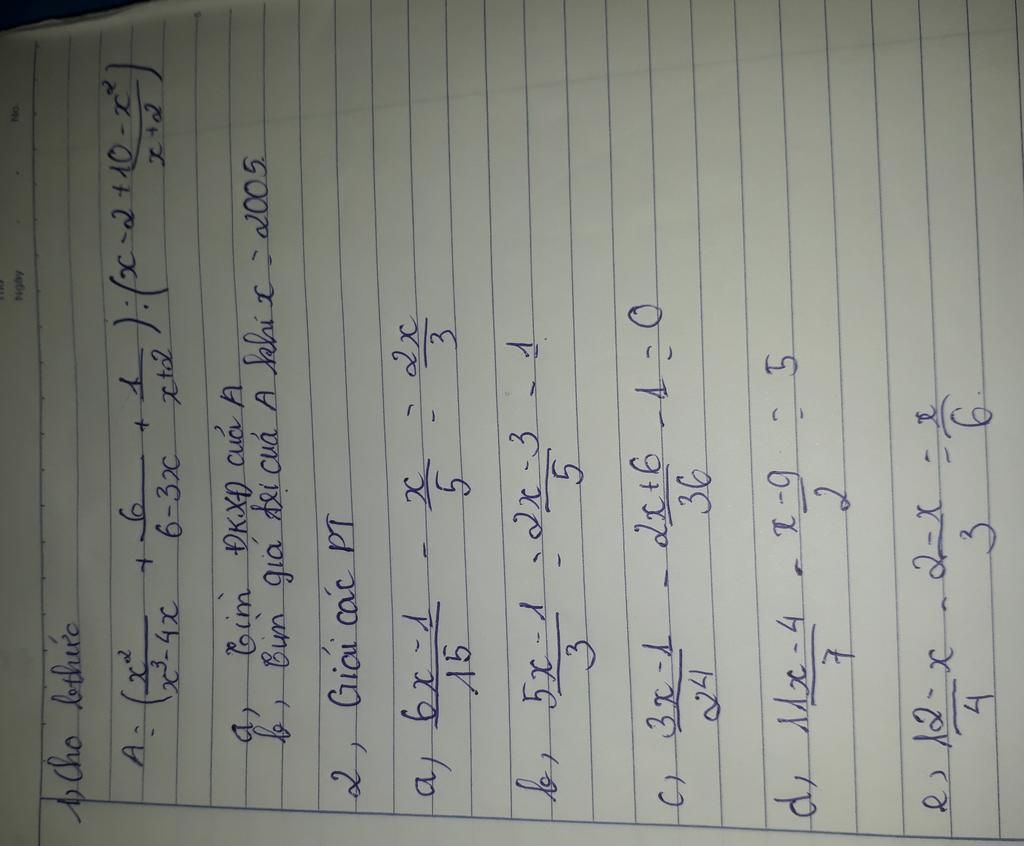 Thứ
Ngày . . No.
1, Cho bthức
A = (x²/(x³-4x) + 6/(6-3x) + 1/(x+2)) : (x-2 + (10-x²)/(x+2))
a, tìm ĐKXĐ của A
b, tìm giá trị của A khi x = 2005
2, Giải các PT
a, (6x-1)/15 - x/5 = 2x/3
b, (5x-1)/3 = (2x-3)/5 - 1
c, (3x-1)/24 - (2x+6)/36 - 1 = 0
d, (11x-4)/7 - (x-9)/2 = 5
e, (12-x)/4 - (2-x)/3 = x/6